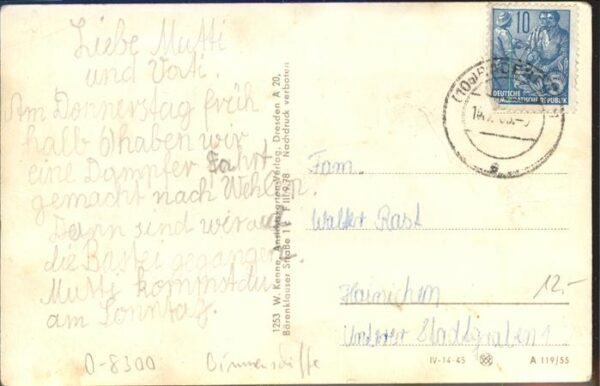 Liebe Mutti
und Vati.
Am Donnerstag früh
halb 6 haben wir
eine Dampfer fahrt
gemacht nach Wehlen.
Dann sind wir auf
die Bastei gegangen.
Mutti kommst du
am Sonntag.
O-8300
Binnenschiffe
1253 W. Kenne, Ansichtskarten-Verlag, Dresden A 20,
Bärenklauser Straße 11 F III 9.78 Nachdruck verboten
10
DEUTSCHE
DEMOKRATISCHE REPUBLIK
(10a)
Fam.
Walter Rast
Hainichen
Unterer Stadtgraben 1
12.-
IV-14-45
A 119/55